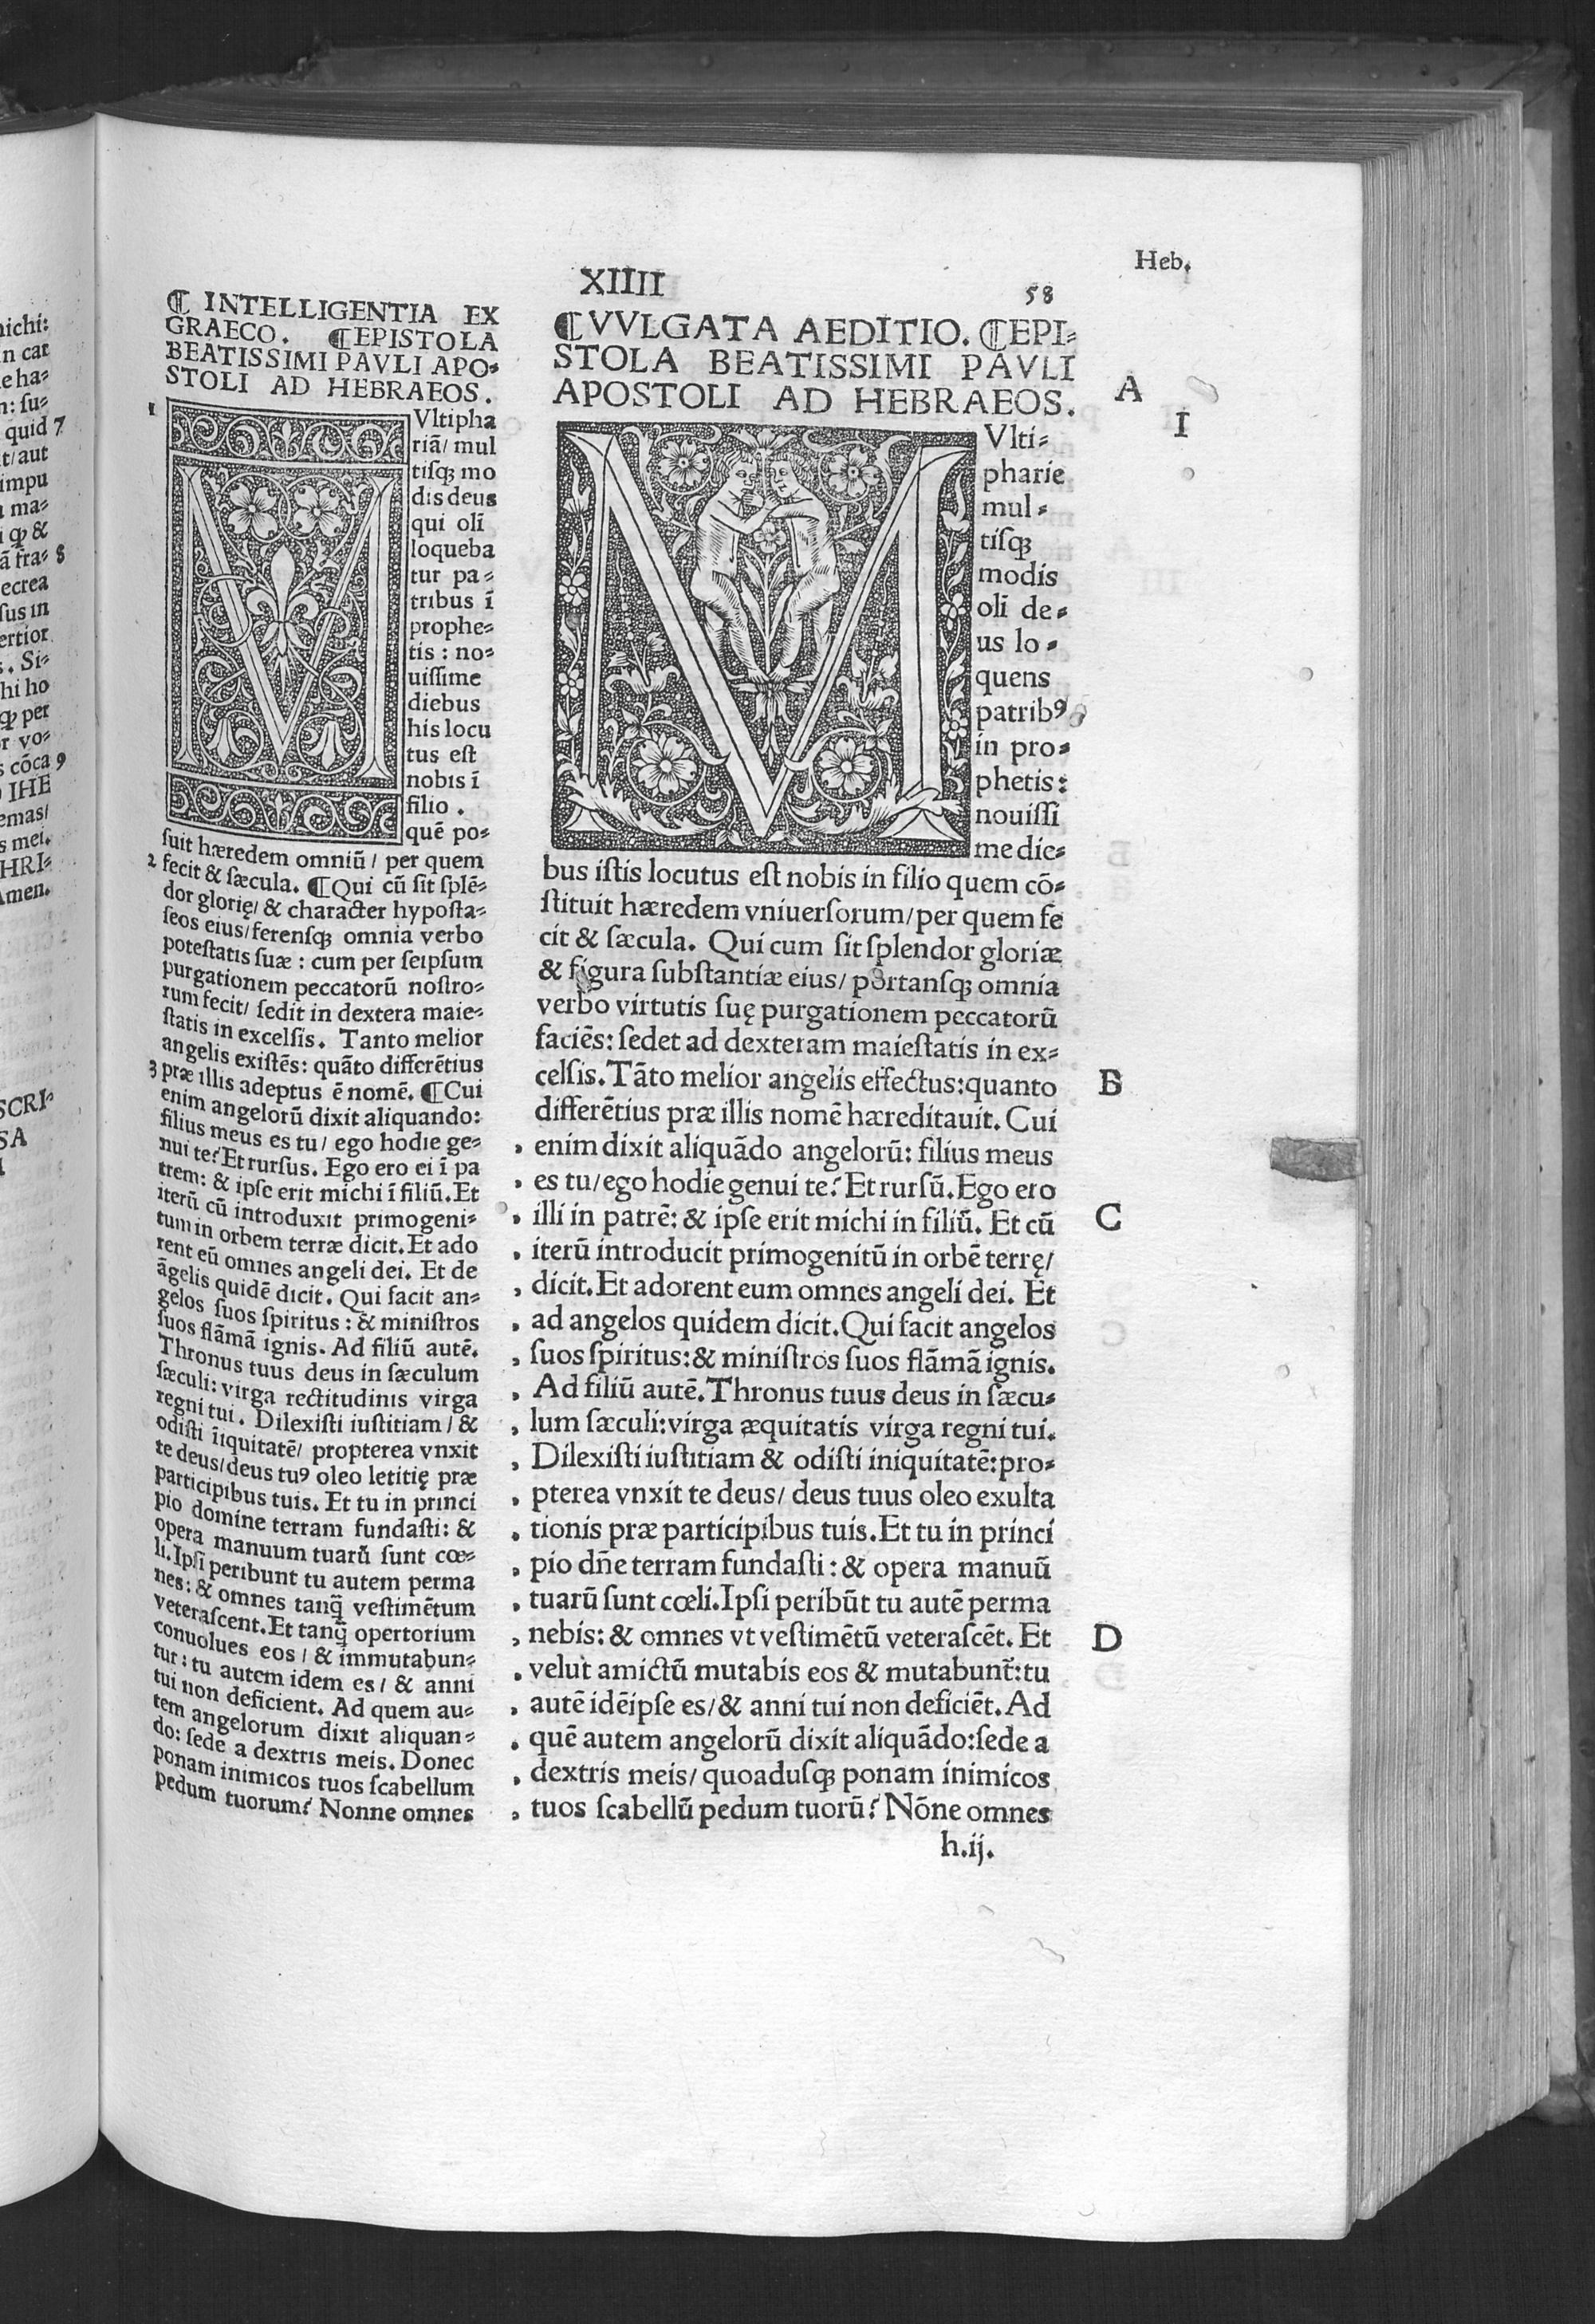 Heb.
XIIII
58
¶ INTELLIGENTIA EX
GRAECO. ¶EPISTOLA
BEATISSIMI PAVLI APO-
STOLI AD HEBRAEOS.
1
MVltipha
riā/ mul
tisq́ꝫ mo
dis deus
qui oli
loqueba
tur pa-
tribus ī
prophe-
tis : no-
uissime
diebus
his locu
tus est
nobis ī
filio .
quē po-
suit hæredem omniū / per quem
2 fecit & sæcula. ¶Qui cū sit splē-
dor glorię/ & character hyposta-
seos eius/ferensqꝫ omnia verbo
potestatis suæ : cum per seipsum
purgationem peccatorū nostro-
rum fecit/ sedit in dextera maie-
statis in excelsis. Tanto melior
angelis existēs: quāto differētius
3 præ illis adeptus ē nomē. ¶Cui
enim angelorū dixit aliquando:
filius meus es tu/ ego hodie ge-
nui te? Et rursus. Ego ero ei ī pa
trem: & ipse erit michi ī filiū. Et
iterū cū introduxit primogeni-
tum in orbem terræ dicit. Et ado
rent eū omnes angeli dei. Et de
āgelis quidē dicit. Qui facit an-
gelos suos spiritus : & ministros
suos flāmā ignis. Ad filiū autē.
Thronus tuus deus in sæculum
sæculi: virga rectitudinis virga
regni tui. Dilexisti iustitiam / &
odisti īiquitatē/ propterea vnxit
te deus/deus tuꝰ oleo letitię præ
participibus tuis. Et tu in princi
pio domine terram fundasti: &
opera manuum tuarū sunt cœ-
li. Ipsi peribunt tu autem perma
nes: & omnes tanq̄ vestimētum
veterascent. Et tanq̄ opertorium
conuolues eos / & immutabun-
tur : tu autem idem es / & anni
tui non deficient. Ad quem au-
tem angelorum dixit aliquan-
do: sede a dextris meis. Donec
ponam inimicos tuos scabellum
pedum tuorum? Nonne omnes
¶VVLGATA AEDITIO. ¶EPI-
STOLA BEATISSIMI PAVLI
APOSTOLI AD HEBRAEOS.
A
I
MVlti-
pharie
mul-
tisqꝫ
modis
oli de-
us lo-
quens
patribꝰ
in pro-
phetis:
nouissi
me die-
bus istis locutus est nobis in filio quem cō-
stituit hæredem vniuersorum/per quem fe
cit & sæcula. Qui cum sit splendor gloriæ
& figura substantiæ eius/ portansqꝫ omnia
verbo virtutis suę purgationem peccatorū
faciēs: sedet ad dexteram maiestatis in ex-
celsis. Tāto melior angelis effectus:quanto B
differētius præ illis nomē hæreditauit. Cui
enim dixit aliquādo angelorū: filius meus
es tu/ego hodie genui te? Et rursū. Ego ero
illi in patrē: & ipse erit michi in filiū. Et cū C
iterū introducit primogenitū in orbē terrę/
dicit. Et adorent eum omnes angeli dei. Et
ad angelos quidem dicit. Qui facit angelos
suos spiritus:& ministros suos flāmā ignis.
Ad filiū autē. Thronus tuus deus in sæcu-
lum sæculi:virga æquitatis virga regni tui.
Dilexisti iustitiam & odisti iniquitatē:pro-
pterea vnxit te deus/ deus tuus oleo exulta
tionis præ participibus tuis. Et tu in princi
pio dn̄e terram fundasti : & opera manuū
tuarū sunt cœli. Ipsi peribūt tu autē perma
nebis: & omnes vt vestimētū veterascēt. Et D
velut amictū mutabis eos & mutabunt̄:tu
autē idēipse es/& anni tui non deficiēt. Ad
quē autem angelorū dixit aliquādo:sede a
dextris meis/ quoadusqꝫ ponam inimicos
tuos scabellū pedum tuorū? Nōne omnes
h.ij.